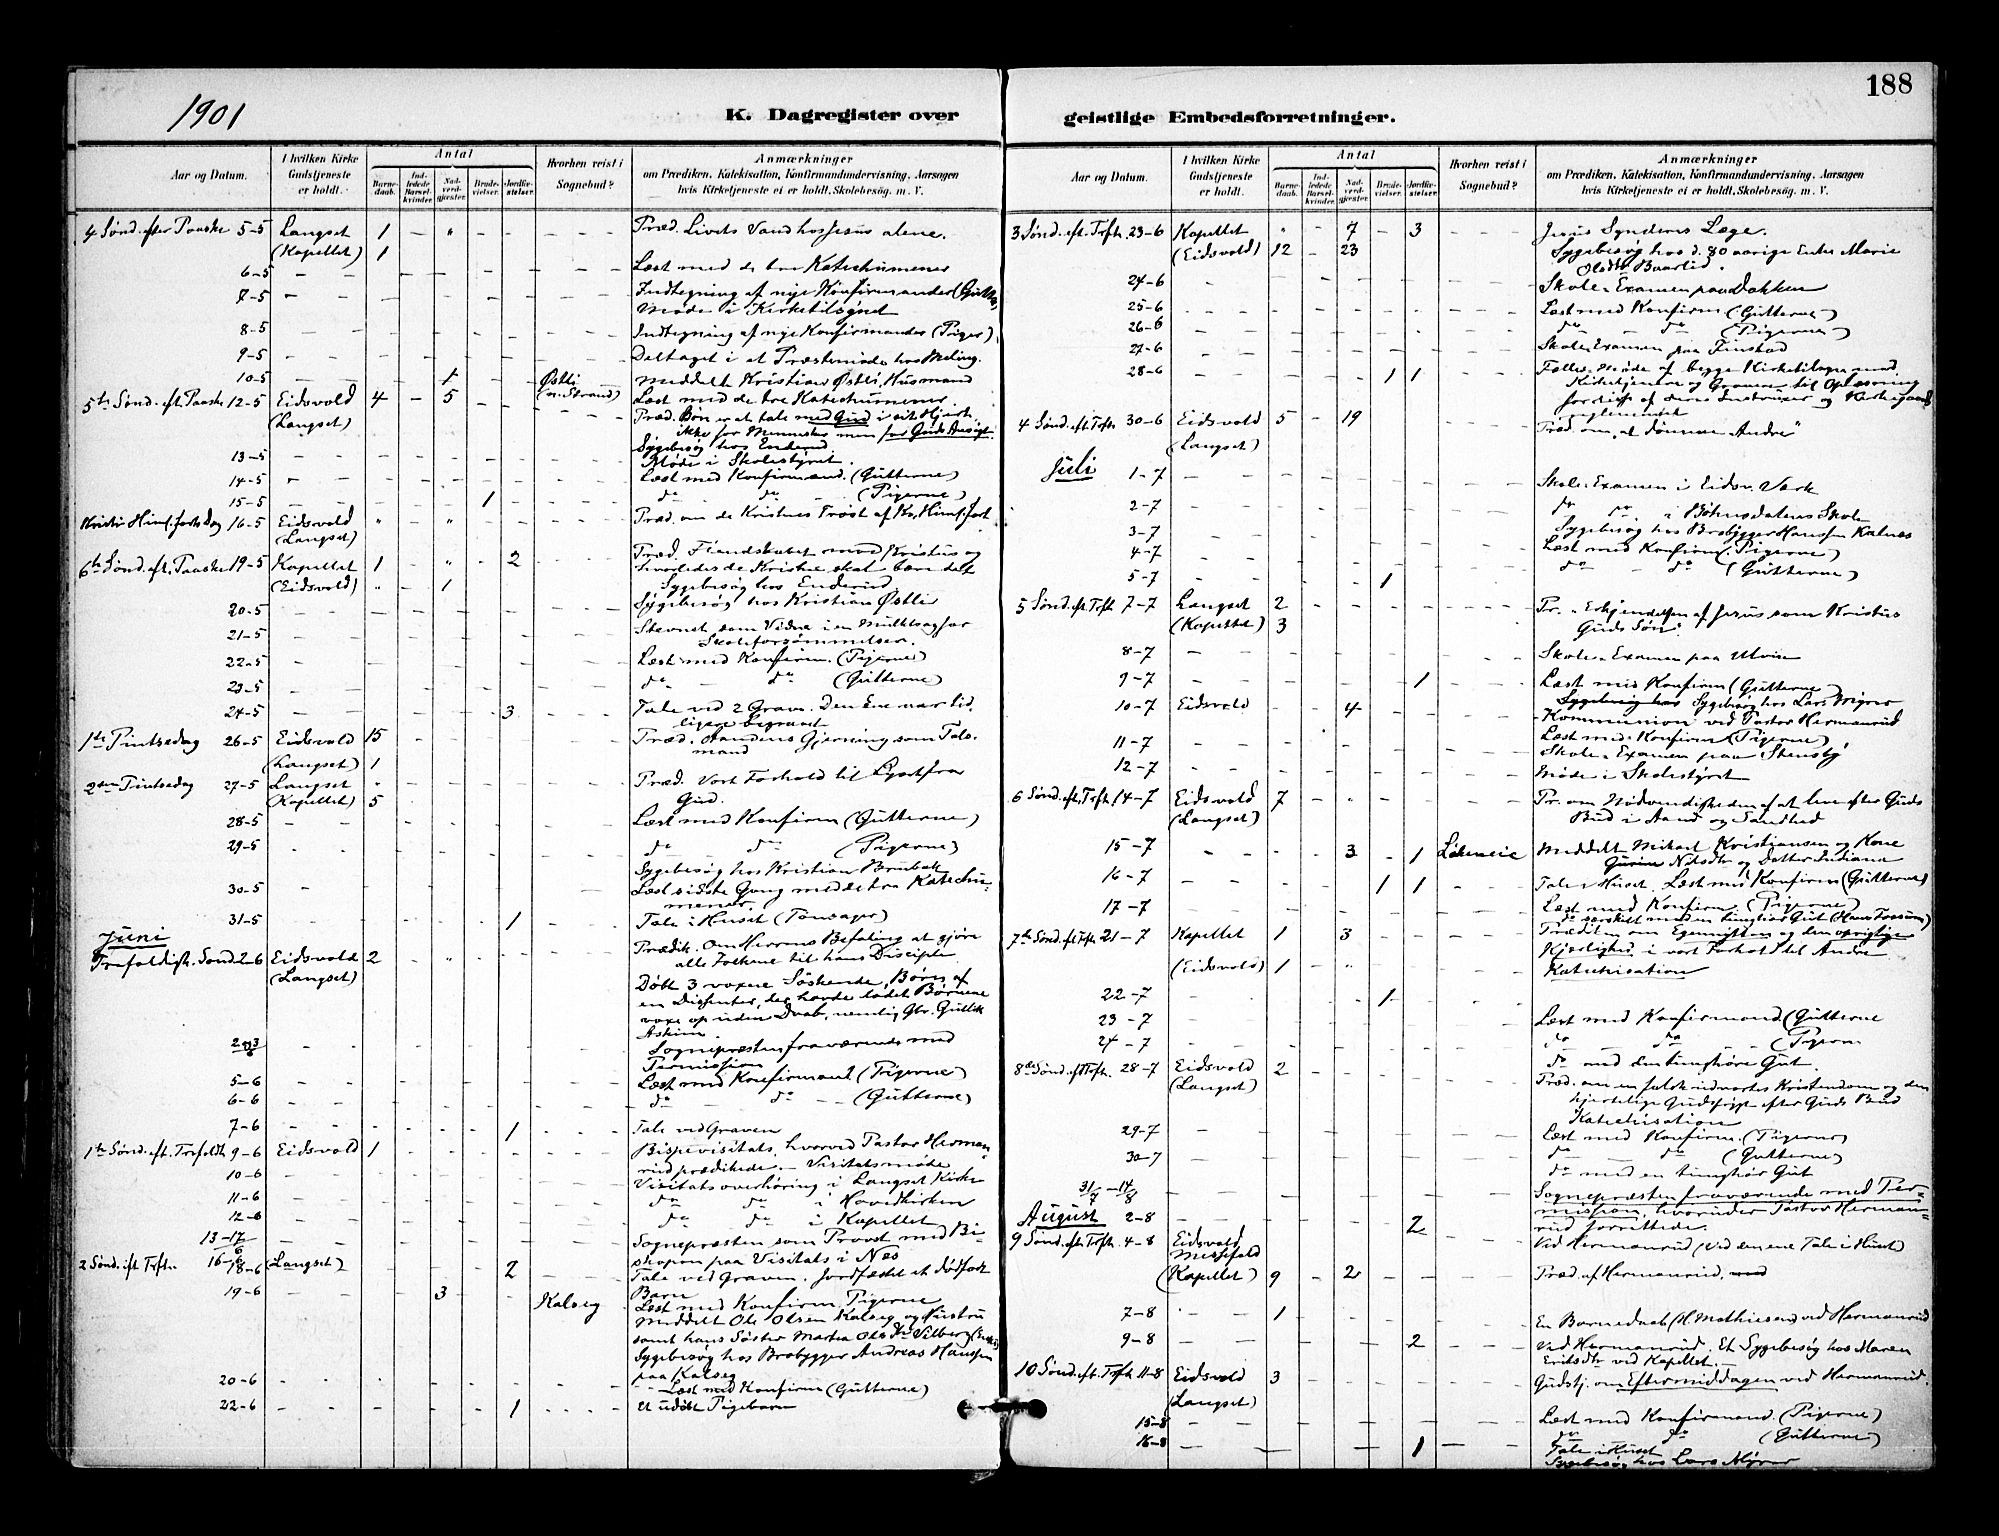 188
1901
K. Dagregister over geistlige Embedsforretninger.
Aar og Datum.
I hvilken Kirke Gudstjeneste er holdt.
Antal
Barnedaab.
Indledede Barselkvinder.
Nadverdgjester.
Brudevielser.
Jordfæstelser.
Hvorhen reist i Sognebud?
Anmærkninger
om Prædiken, Katekisation, Konfirmandundervisning, Aarsagen
hvis Kirketjeneste ei er holdt, Skolebesøg, m. V.
4 Sønd. efter Paaske 5-5 Langset 1 - " - - - - - Præd. Livets Vand hos Jesus alene.
(Kapellet) 1
6-5 Læst med de tre Katechumener
7-5 Indtegning af nye Konfirmander
Møde i Kirketilsynet
8-5 Indtegning af nye Konfirmander (Piger)
9-5 Deltaget i et Præstemøde hos
10-5 1 Østli Meddelt Kristian Østli, Husmand
5te Sønd. eft. Paaske 12-5 Eidsvold 4 - 5 Læst med de tre Katechumener
(Langset) Præd. Bøn er at tale med Gud i sit Hjert
ikke for Mennesker men for Guds Ansigt
Sygebesøg hos Enderud
13-5 Møde i Skolestyret.
14-5 Læst med Konfirmand. (Gutterne)
15-5 1 do do (Pigerne)
Kristi Himl. farts Dag 16-5 Eidsvold " - " Præd. om de Kristnes Trøst af Kr. Himl.fart
(Langset)
6te Sønd. eft. Paaske 19-5 Kapellet 1 - " - 2 Præd. Fiendskabet mod Kristus og
(Eidsvold) " - 1 hvorledes de Kristne skal bære det
Sygebesøg hos Enderud
20-5 Sygebesøg hos Kristian Østli
21-5 Stevnet som Vidne i en Mulktsag for
Skoleforsømmelser.
22-5 Læst med Konfirm. (Pigerne)
23-5 do do (Gutterne)
24-5 3 Tale ved 2 Grave. Den Ene var tid
ligere begravet
1ste Pintsedag 26-5 Eidsvold 15 Præd. Aandens Gjerning som Tals-
(Langset) 1 mand
2den Pintsedag 27-5 Langset " Præd. Vort Forhold til Lyset fra
(Kapellet) 5 Gud.
28-5 Læst med Konfirm (Gutterne)
29-5 do do (Pigerne)
Sygebesøg hos Kristian
30-5 Læst sidste Gang med de tre Katechu-
mener.
31-5 1 Tale i Huset (Tonsager)
Juni
Trefoldigh. Sønd 2-6 Eidsvold 2 - " Prædik. om Herrens Befaling at gjøre
(Langset) alle Folkene til hans Disciple
Døbt 3 voxne Søskende, Børn af
en Dissenter, der havde ladet Børnene
voxe op uden Daab, nemlig Gbr. Gullik
Askim.
Sognepræsten fraværende med
Permission
5-6 Læst med Konfirmand (Pigerne)
6-6 do do (Gutterne)
7-6 1 Tale ved Graven
1ste Sønd. eft. Trefoldh 9-6 Eidsvold 1 Bispevisitats, hvorved Pastor Herman
rud prædikede. - Visitatsmøde
10-6 Visitatsoverhøring i Langset Kirke
11-6 do do i Hovedkirken
12-6 do do i Kapellet
13-17/6 Sognepræsten som Provst med Bi-
2 Sønd. eft Trfh. 16-6 (Langset) skopen paa Visitats i Nes
18-6 2 Tale ved Graven. Jordfæstet et dødfødt
Barn
19-6 3 Kalseg Læst med Konfirm. Pigerne
Meddelt Ole Olsen Kalseg og Hustru
samt hans Søster Martea Olsdr
Sygebesøg hos Brobygger Andreas Hanssen
paa Kalseg
20-6 Læst med Konfirm (Gutterne)
22-6 1 et udøbt Pigebarn
3 Sønd. eft. Trfh. 23-6 Kapellet " - 7 - 3 Jesus Synderes Læge.
(Eidsvold) 12 - 23 Sygebesøg hos d. 80 aarige Enke Marie
Olsdtr
24-6 Skole-Examen paa Dokken
25-6 Læst med Konfirm (Gutterne)
26-6 do do (Pigerne)
27-6 Skole Examen paa Finstad
28-6 1 1 Fælles-Møde af begge Kirketilsyn med
Kirketjenere og Gravere til Oplæsning
4 Sønd. eft. Trfh 30-6 Eidsvold 5 - 19 Præd. om "at dømme Andre"
(Langset)
Juli 1-7 Skole-Examen i Eidsv. Værk
2-7 do do i Bøhnsdalens Skole
3-7 Sygebesøg hos Brobygger Hanssen Kalnes
4-7 Læst med Konfirm (Pigerne)
5-7 1 do do (Gutterne)
5 Sønd. eft. Trfh 7-7 Langset 2 Pr. Erkjendelsen af Jesus som Kristus
(Kapellet) 3 Guds Søn.
8-7 Skole-Examen paa Ulvin
9-7 1 Læst med Konfirm (Gutterne)
10-7 Eidsvold 4 Sygebesøg hos Lars
Kommunion ved Pastor Hermanrud
11-7 Læst med Konfirm (Pigerne)
12-7 Skole-Examen paa Stensby
Møde i Skolestyret
6 Sønd. eft. Trfh. 14-7 Eidsvold 7 - " Pr. om Nødvendigheden af at leve efter Guds
(Langset) Bud i Aand og Sandhed
15-7 3 - 1 Meddelt Mikael Kristiansen og Kone
Nilsdtr og Datter Indiana
16-7 1 1 Tale i Huset. Læst med Konfirm (Gutterne)
17-7 Læst med Konfirm. (Pigerne)
do særskilt med en tunghør Gut
7de Sønd. eft Trfh 21-7 Kapellet 1 3 Prædiken om Egennytten og den oprigtige
(Eidsvold) 1 - " Kjærlighed i vort Forhold til Andre
Katechisation
22-7 1
23-7 Læst med Konfirmand (Gutterne
24-7 do do (Pigerne
do med den tunghøre Gut.
8de Sønd. eft Trfh. 28-7 Eidsvold 2 Præd. om en falsk udvortes Kristendom og den
(Langset) hjertelige Gudsfrygt efter Guds Bud
Katechisation
29-7 Læst med Konfirm. (Pigerne)
30-7 do do (Gutterne)
do med en tunghør Gut
31/7-14/8 Sognepræsten fraværende med Per-
mission, hvorunder Pastor Herman-
rud forrettede.
August 2-8 2 Ved Hermanrud (Ved den ene Tale i Huset)
9 Sønd. eft. Trfh. 4-8 Eidsvold
Messefald
(Kapellet) 9 - 2 Præd. af Hermanrud.
7-8 1 En Barnedaab (H. Mathiesen) ved Hermanrud
9-8 2 Ved Hermanrud. Et Sygebesøg hos Maren
Eriksdtr ved Kapellet.
10 Sønd. eft. Trfh 11-8 Eidsvold 3 Gudstj. om Eftermiddagen ved Hermanrud.
(Langset)
15-8 Læst med Konfirmand. (Pigerne)
16-8 1 do do (Gutterne)
Tale i Huset
Sygebesøg hos Lars